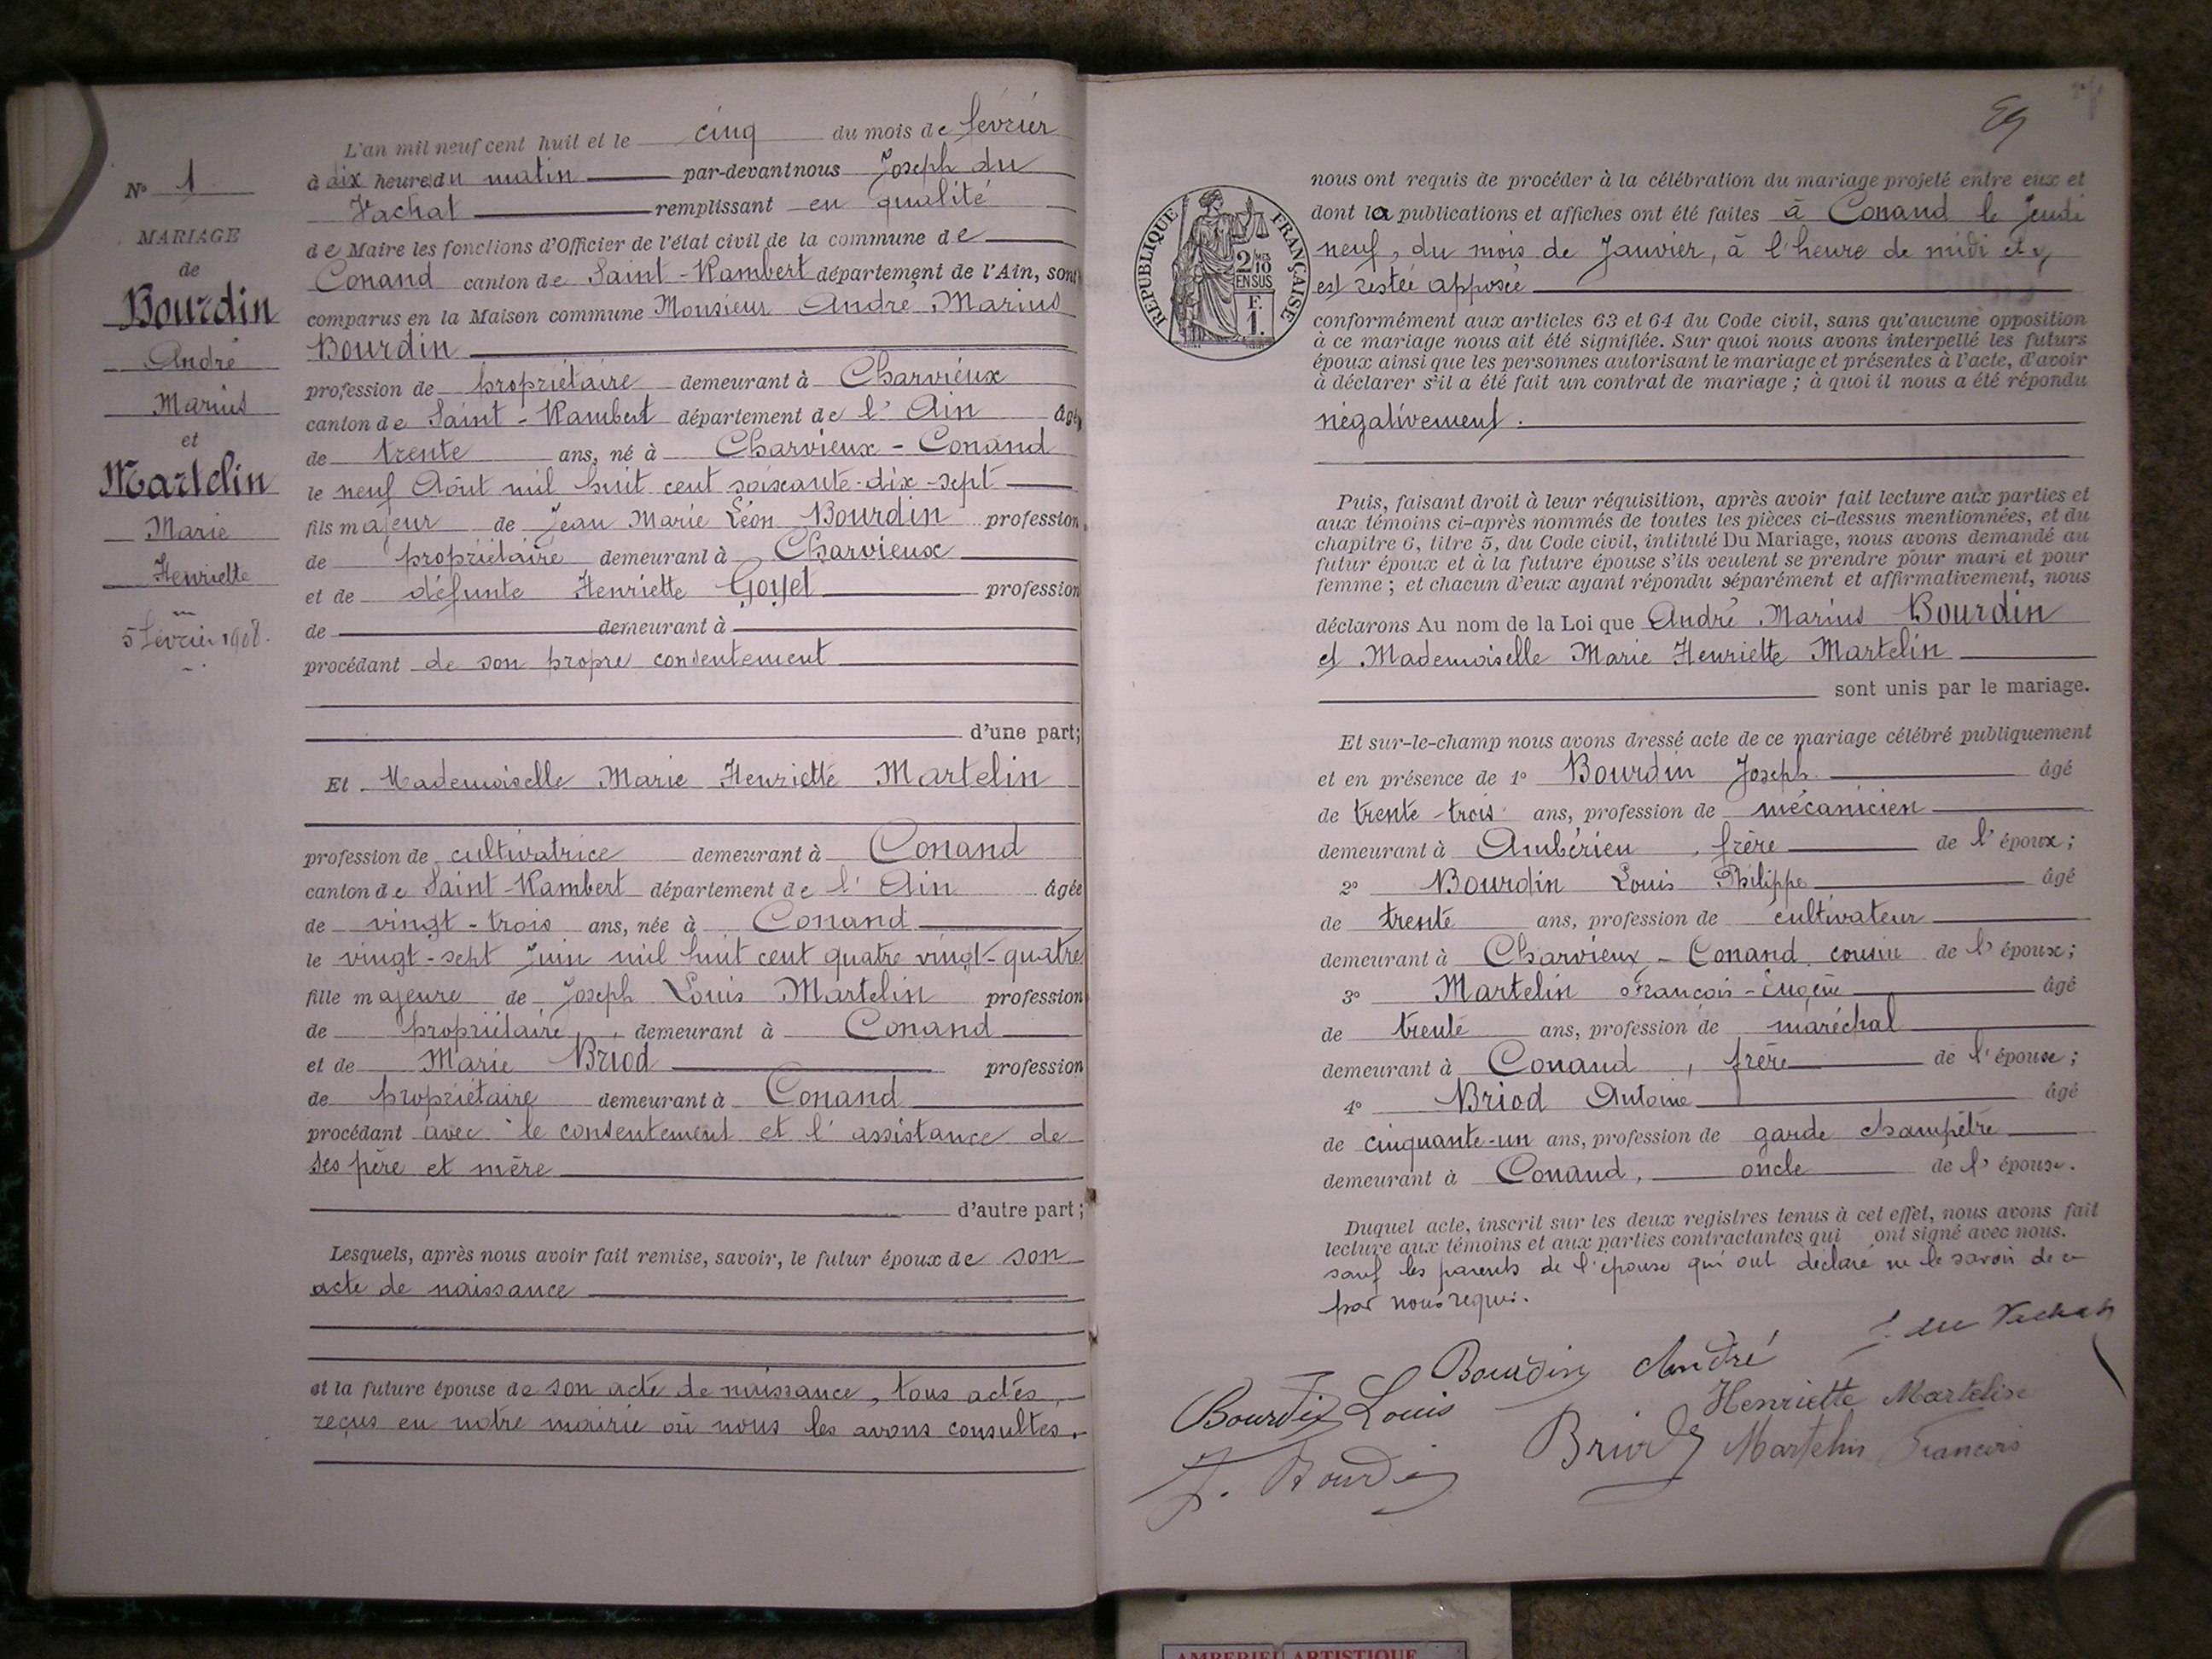 N° 1
MARIAGE
de
Bourdin
André
Marius
et
Martelin
Marie
Henriette
5 février 1908.
L'an mil neuf cent huit et le cinq du mois de février
à dix heures du matin par-devant nous Joseph du
Vachat remplissant en qualité
de Maire les fonctions d'Officier de l'état civil de la commune de
Conand canton de Saint-Rambert département de l'Ain, sont
comparus en la Maison commune Monsieur André Marius
Bourdin
profession de propriétaire demeurant à Charvieux
canton de Saint-Rambert département de l'Ain âgé
de trente ans, né à Charvieux - Conand
le neuf Août mil huit cent soixante-dix-sept
fils majeur de Jean Marie Léon Bourdin profession
de propriétaire demeurant à Charvieux
et de défunte Henriette Goyet profession
de demeurant à
procédant de son propre consentement
d'une part;
Et Mademoiselle Marie Henriette Martelin
profession de cultivatrice demeurant à Conand
canton de Saint-Rambert département de l'Ain âgée
de vingt-trois ans, née à Conand
le vingt-sept Juin mil huit cent quatre vingt-quatre
fille majeure de Joseph Louis Martelin profession
de propriétaire, demeurant à Conand
et de Marie Briod profession
de propriétaire demeurant à Conand
procédant avec le consentement et l'assistance de
ses père et mère
d'autre part;
Lesquels, après nous avoir fait remise, savoir, le futur époux de son
acte de naissance
et la future épouse de son acte de naissance, tous actes
reçus en notre mairie où nous les avons consultés.
59
RÉPUBLIQUE FRANÇAISE
2 MES
10
EN SUS
F.
1.
nous ont requis de procéder à la célébration du mariage projeté entre eux et
dont la publications et affiches ont été faites à Conand le Jeudi
neuf, du mois de Janvier, à l'heure de midi et y
est restée apposée
conformément aux articles 63 et 64 du Code civil, sans qu'aucune opposition
à ce mariage nous ait été signifiée. Sur quoi nous avons interpellé les futurs
époux ainsi que les personnes autorisant le mariage et présentes à l'acte, d'avoir
à déclarer s'il a été fait un contrat de mariage; à quoi il nous a été répondu
négativement.
Puis, faisant droit à leur réquisition, après avoir fait lecture aux parties et
aux témoins ci-après nommés de toutes les pièces ci-dessus mentionnées, et du
chapitre 6, titre 5, du Code civil, intitulé Du Mariage, nous avons demandé au
futur époux et à la future épouse s'ils veulent se prendre pour mari et pour
femme; et chacun d'eux ayant répondu séparément et affirmativement, nous
déclarons Au nom de la Loi que André Marius Bourdin
et Mademoiselle Marie Henriette Martelin
sont unis par le mariage.
Et sur-le-champ nous avons dressé acte de ce mariage célébré publiquement
et en présence de 1° Bourdin Joseph âgé
de trente-trois ans, profession de mécanicien
demeurant à Ambérieu, frère de l'époux;
2° Bourdin Louis Philippe âgé
de trente ans, profession de cultivateur
demeurant à Charvieux - Conand cousin de l'époux;
3° Martelin François-Eugène âgé
de trente ans, profession de maréchal
demeurant à Conand, frère de l'épouse;
4° Briod Antoine âgé
de cinquante-un ans, profession de garde champêtre
demeurant à Conand, oncle de l'épouse.
Duquel acte, inscrit sur les deux registres tenus à cet effet, nous avons fait
lecture aux témoins et aux parties contractantes qui ont signé avec nous.
sauf les parents de l'épouse qui ont déclaré ne le savoir de ce
par nous requis.
J. du Vachat
Bourdin André
Bourdin Louis
Henriette Martelin
Briod
Martelin François
J. Bourdin
AMBERIEU ARTISTIQUE